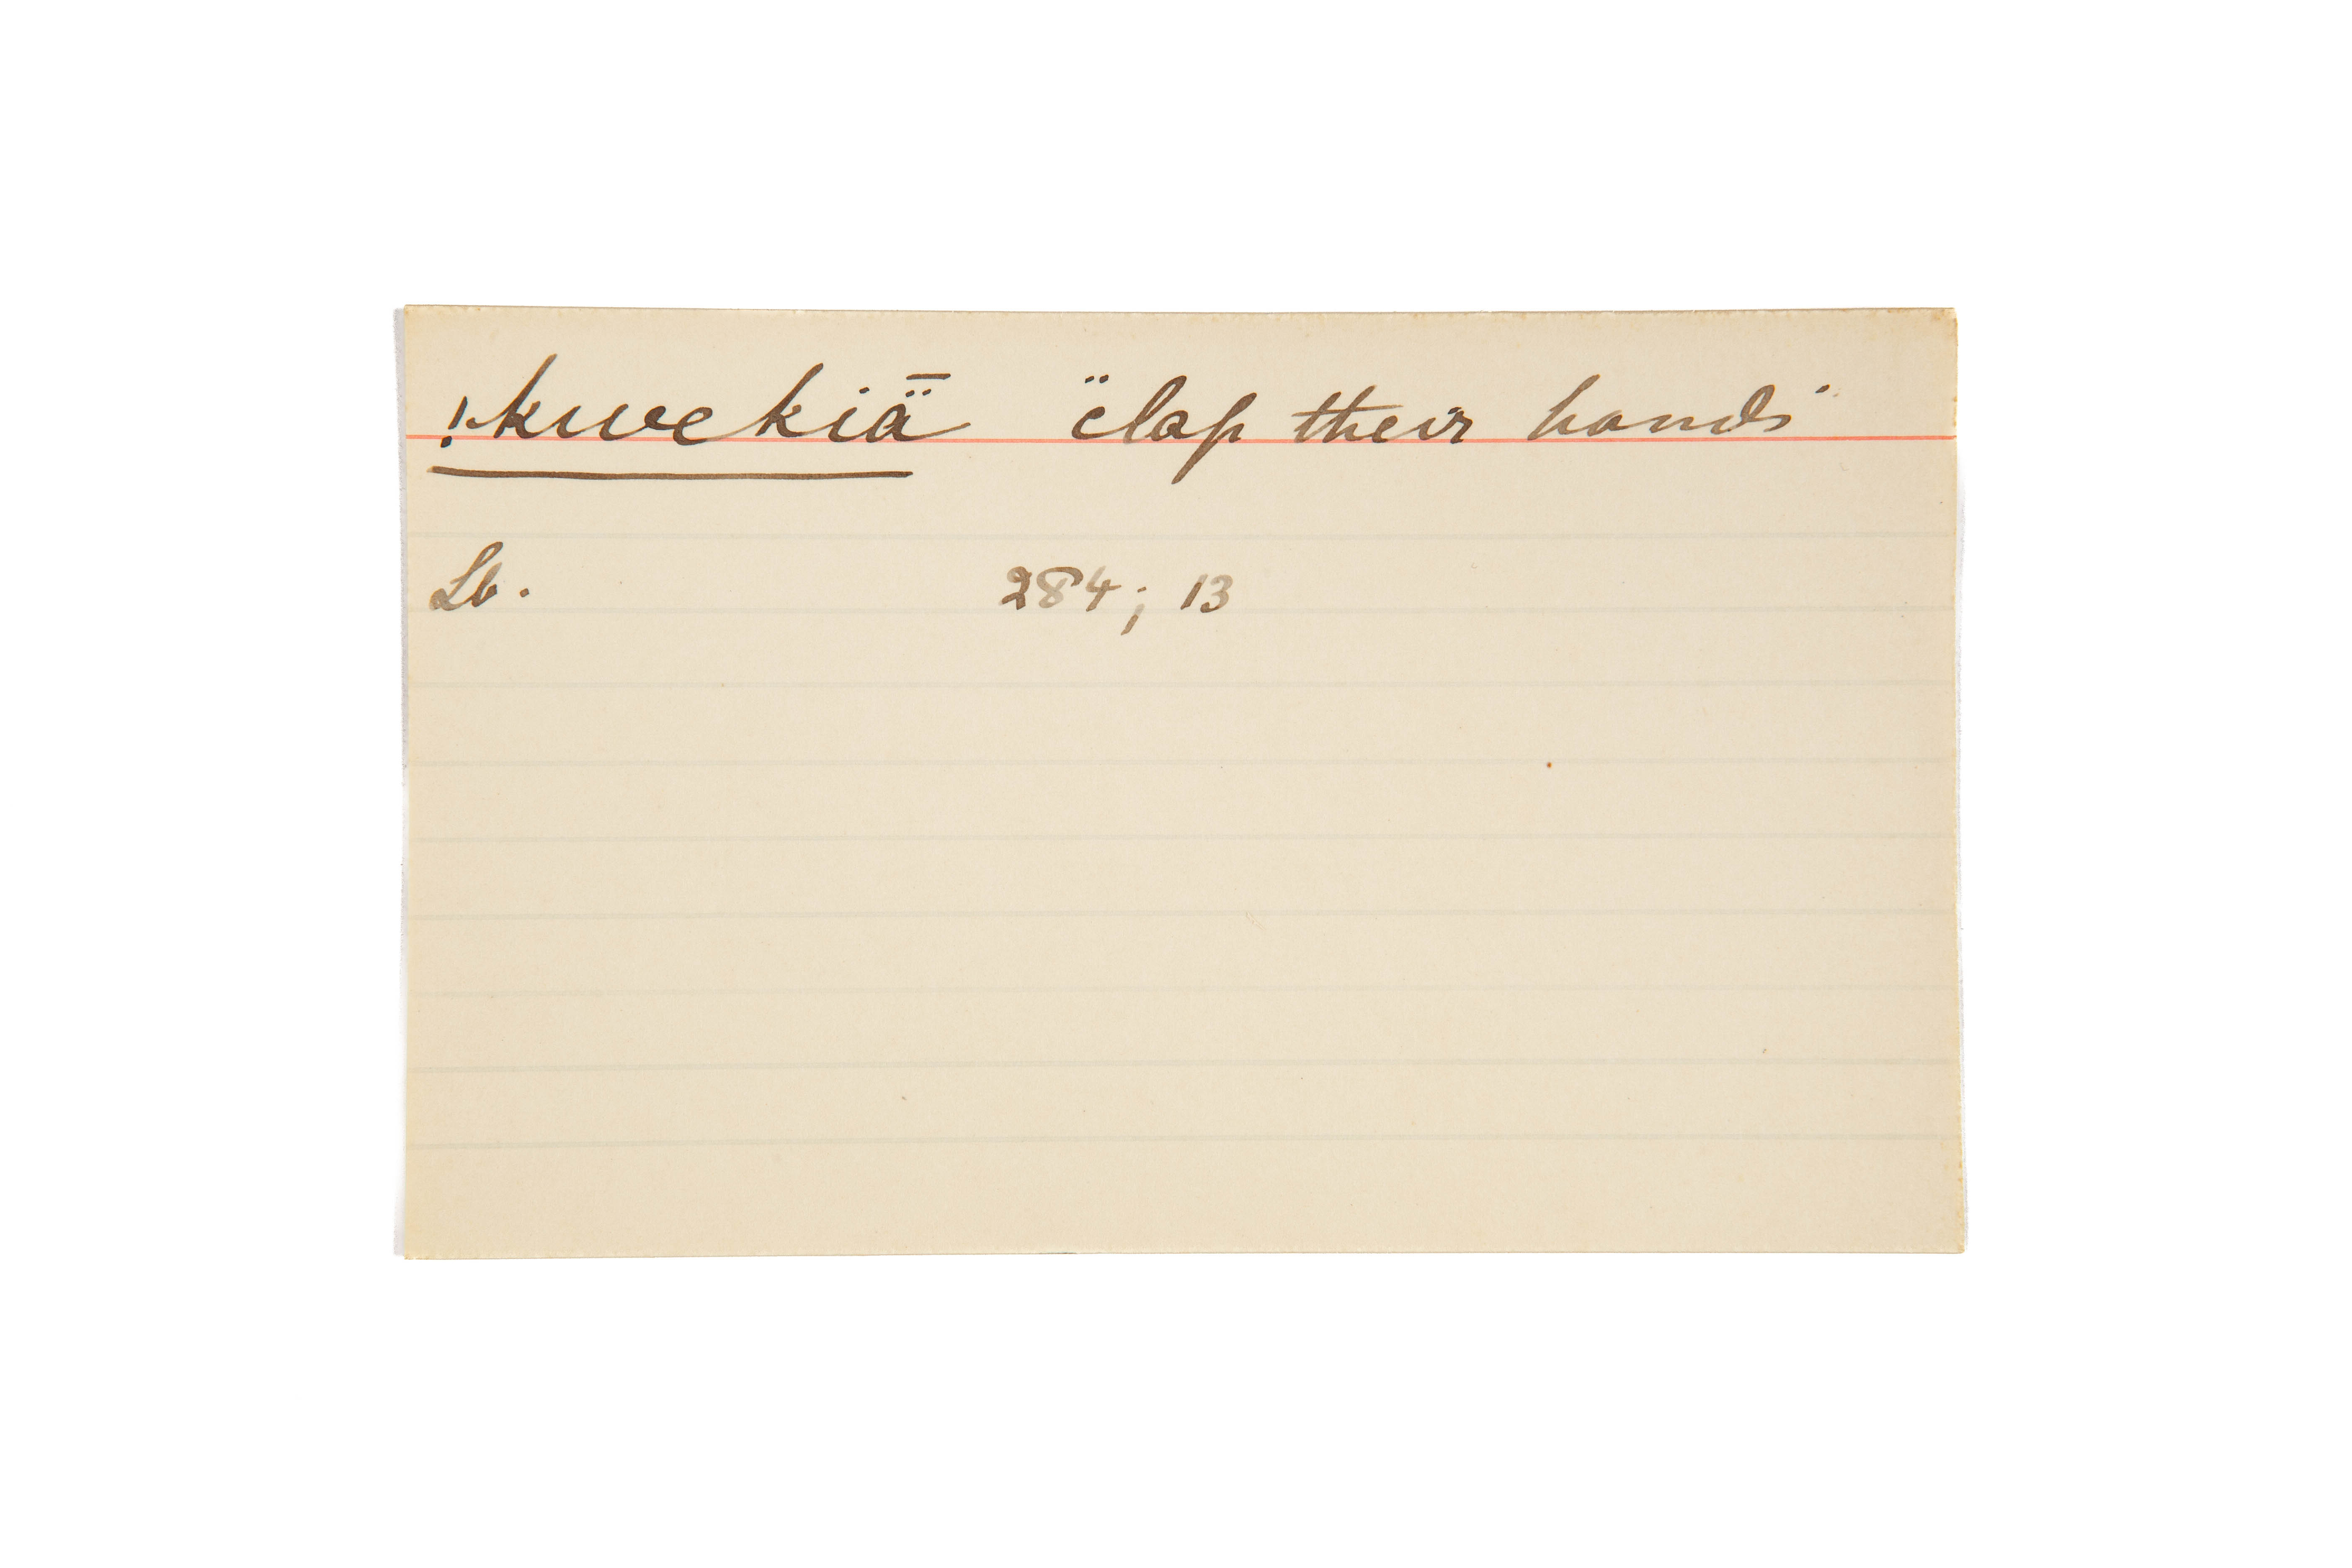 !kwekiǟ "clap their hands"
Lb. 284; 13